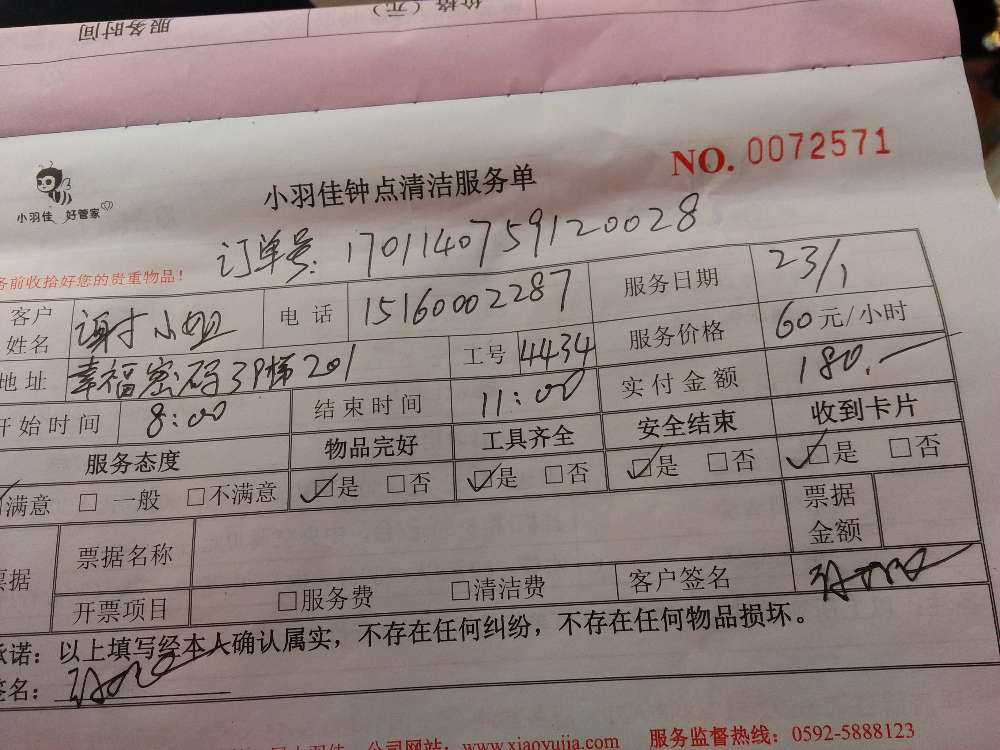 价格(元)
服务时间
NO. 0072571
小羽佳 好管家
小羽佳钟点清洁服务单
订单号: 1701140759120028
务前收拾好您的贵重物品!
客户姓名 谢小姐 电话 15160002287 服务日期 23/1
地址 幸福密码39梯201 工号 4434 服务价格 60元/小时
开始时间 8:00 结束时间 11:00 实付金额 180.一
服务态度 物品完好 工具齐全 安全结束 收到卡片
满意 □一般 □不满意 ☑是 □否 ☑是 □否 ☑是 □否 ☑是 □否
票据 票据名称 票据金额
开票项目 □服务费 □清洁费 客户签名
承诺:以上填写经本人确认属实,不存在任何纠纷,不存在任何物品损坏。
签名:
小羽佳 公司网站:www.xiaoyujia.com 服务监督热线:0592-5888123